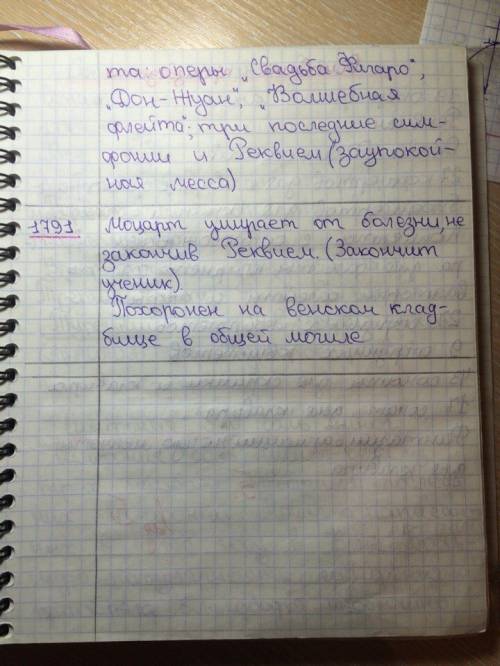 та: оперы „Свадьба Фигаро",
„Дон-Жуан", „Волшебная
флейта"; три последние сим-
фонии и Реквием (заупокой-
ная месса)
1791 Моцарт умирает от болезни, не
закончив Реквием. (Закончит
ученик).
Похоронен на венском клад-
бище в общей могиле